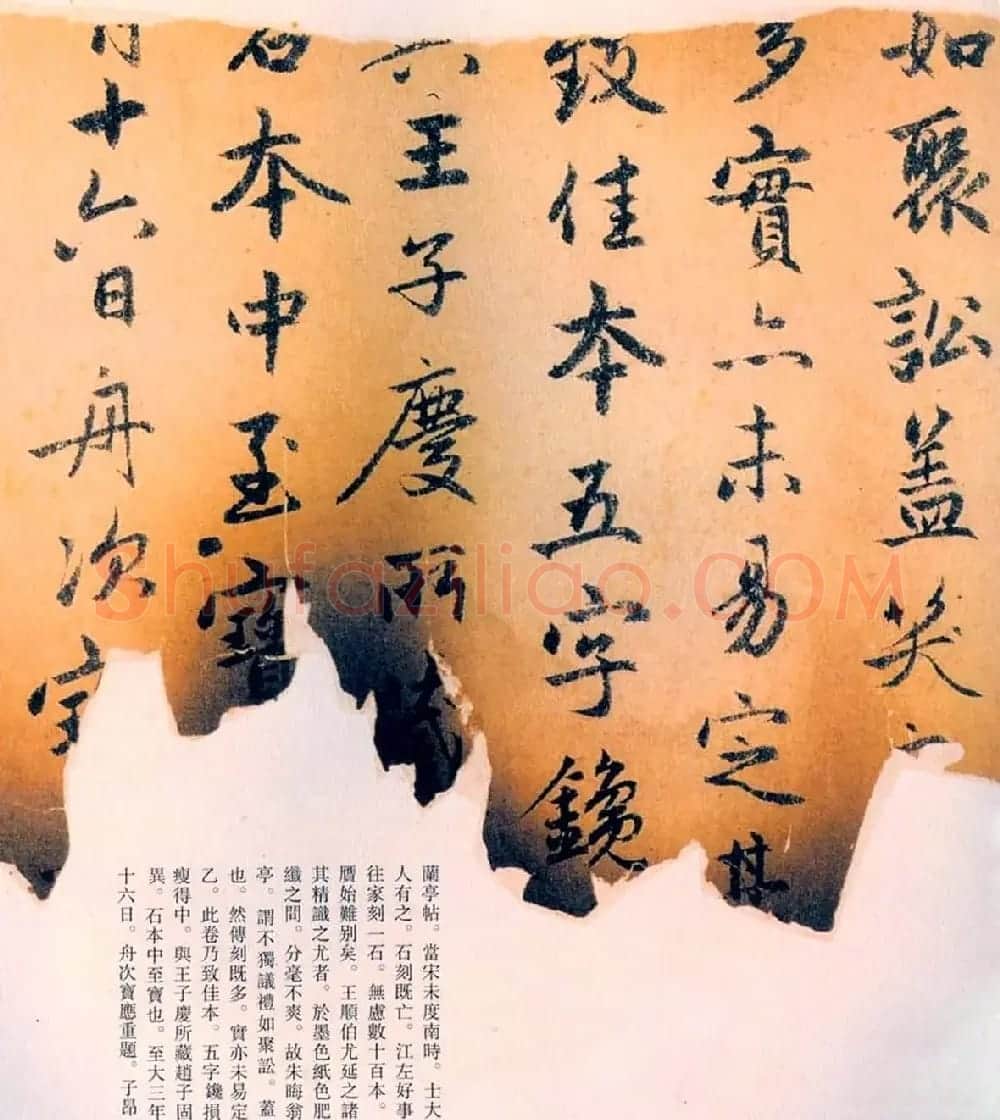 如聚訟盖笑
多實亦未易定其
致佳本五字鑱
六王子慶所藏
石本中至寶
月十六日舟次寶
shufaziliao.COM
蘭亭帖。當宋未度南時。士大
人有之。石刻既亡。江左好事
往家刻一石。無慮數十百本。
贋始難别矣。王順伯尤延之諸
其精識之尤者。於墨色紙色肥
纖之間。分毫不爽。故朱晦翁
亭。謂不獨議禮如聚訟。蓋
也。然傳刻既多。實亦未易定
乙。此卷乃致佳本。五字鑱損
瘦得中。與王子慶所藏趙子固
異。石本中至寶也。至大三年
十六日。舟次寶應重題。子昂